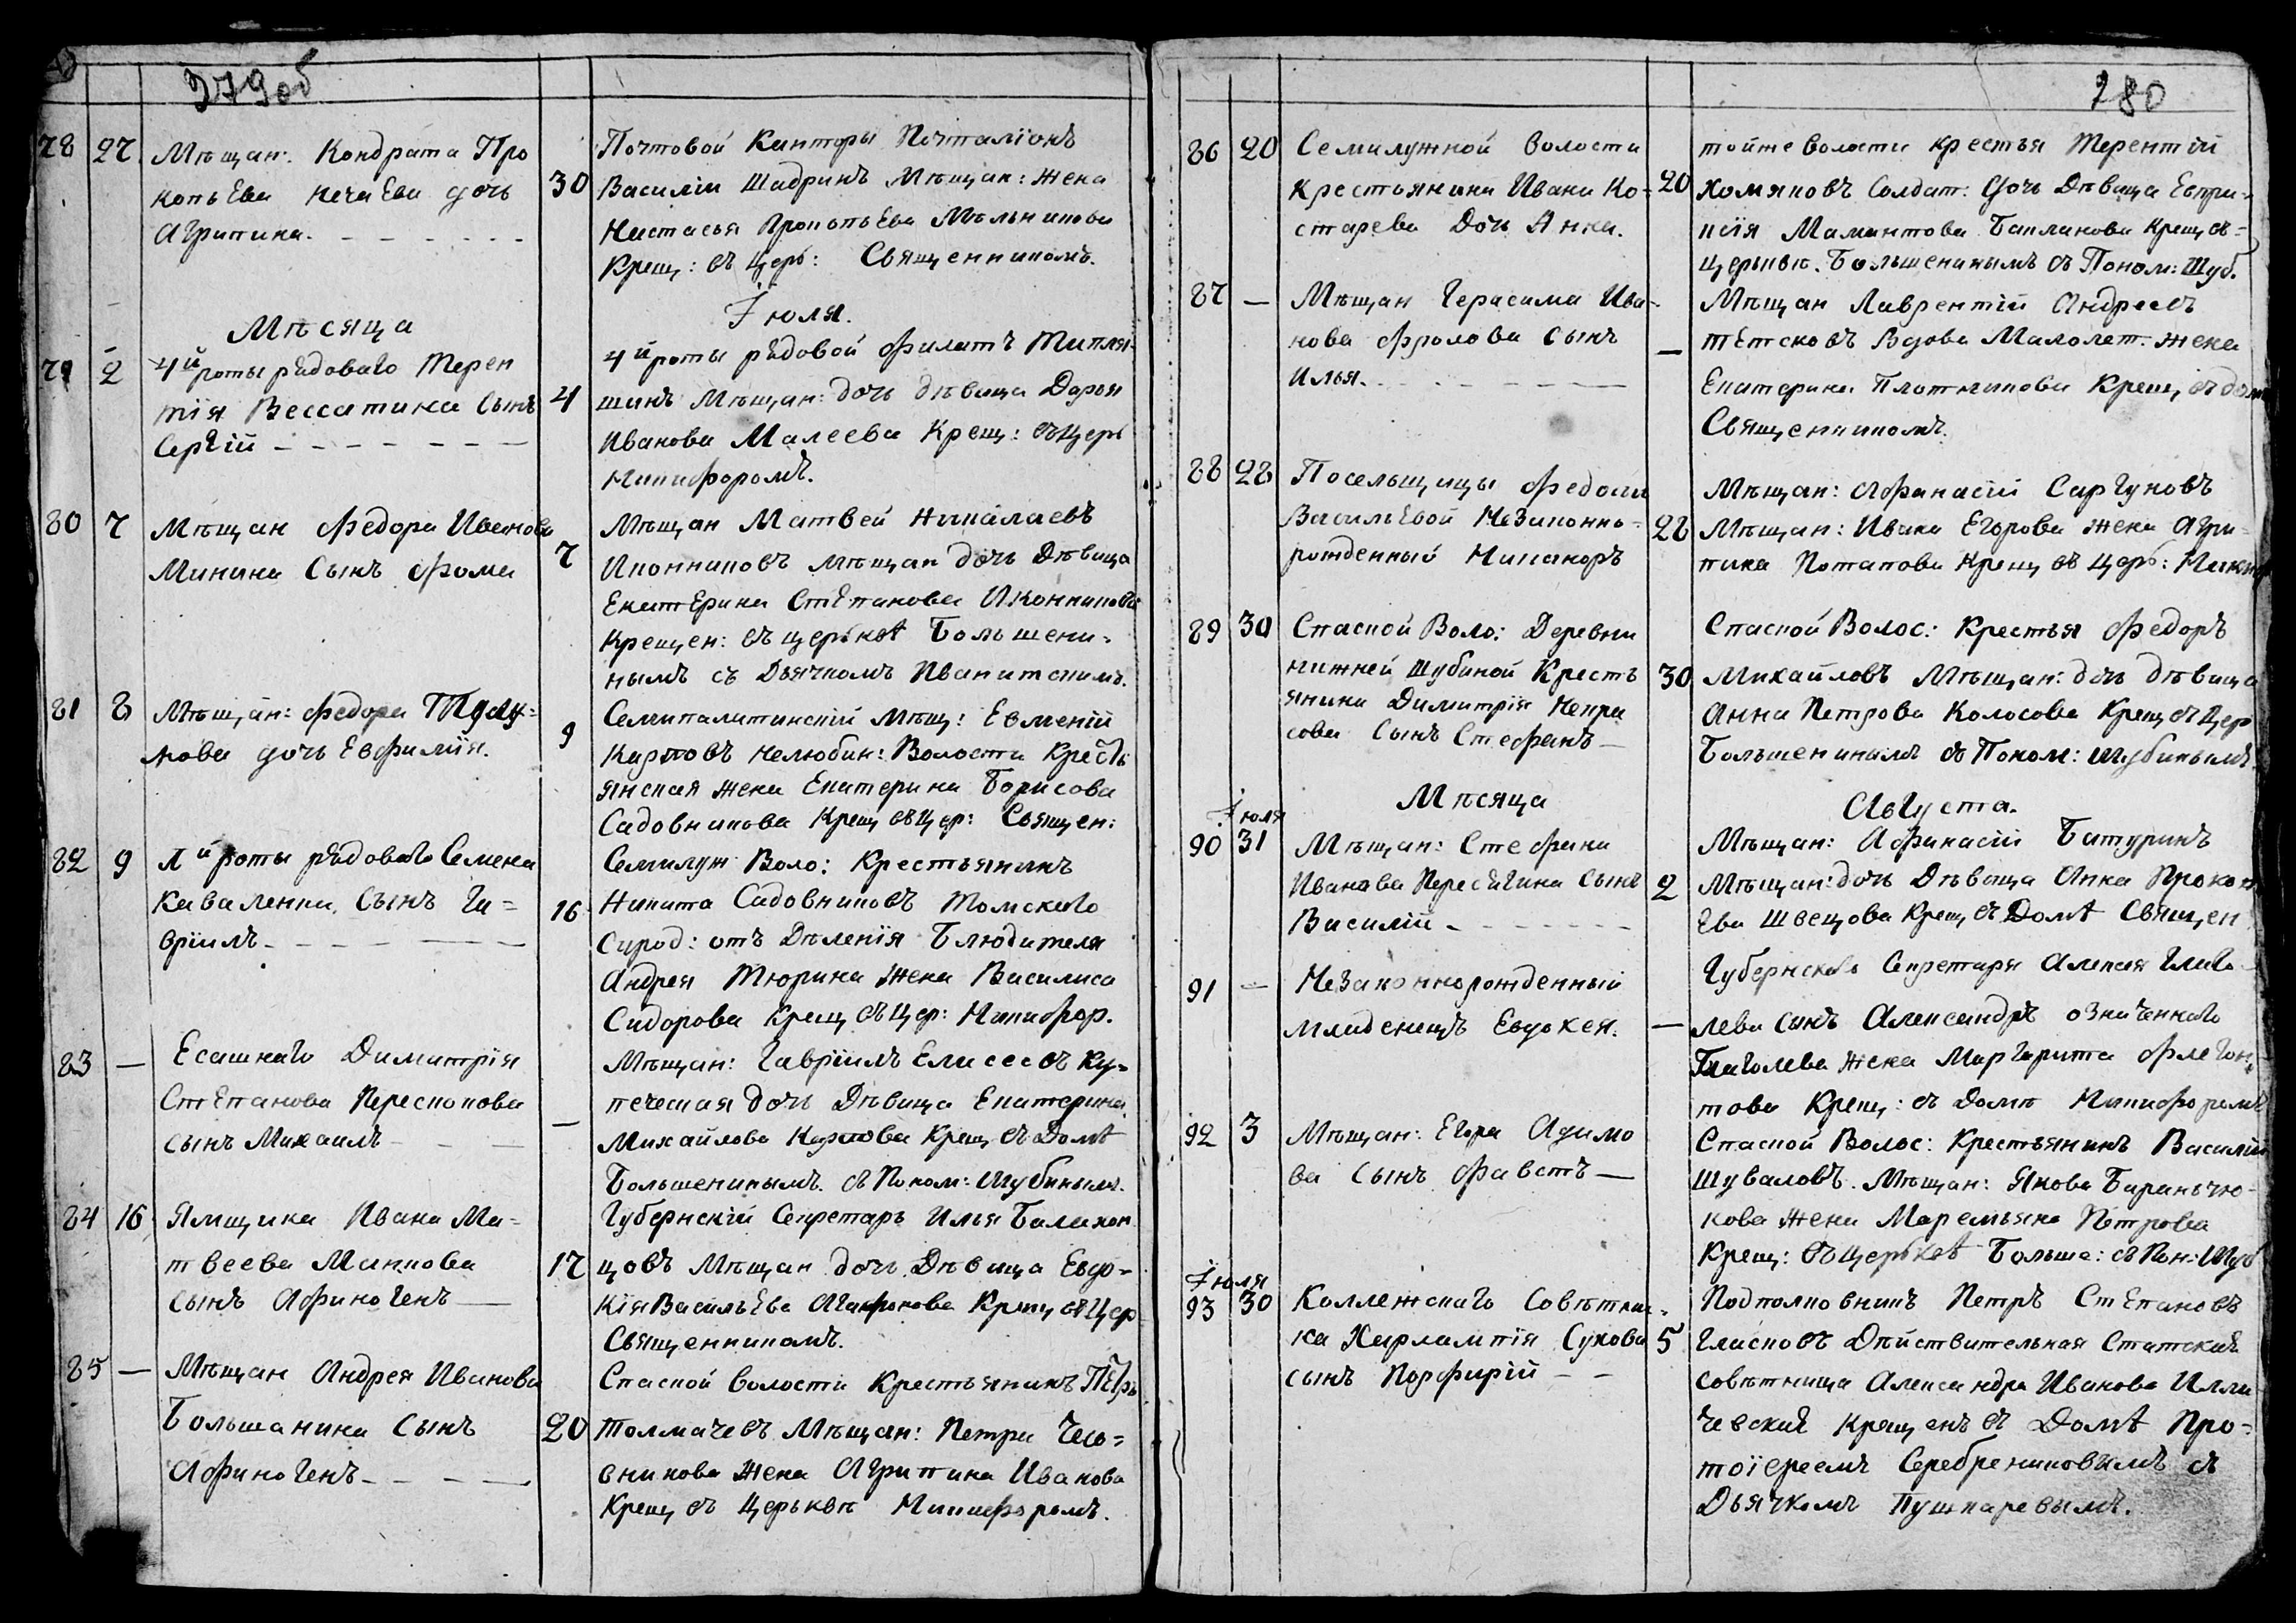 279об
78 27 Мѣщан: Кондрата Про
копьева Нечаева дочь
Агрипина.
30
Почтовой Канторы Почталіонъ
Василіи Шадринъ Мѣщан: жена
Настасья Прокопьева Мѣльникова
Крещ: въ Церь: Священникомъ.
Мѣсяца Іюля.
79 2 4й роты рѣдоваго Терен
тія Вессатина Сынъ
Сергій
4
4й роты рѣдовой Филатъ
шинъ Мѣщан: дочь дѣвица Дарья
Иванова Малеева Крещ: въ Церь
Никифоромъ.
80 7 Мѣщан Федора Иванова
Минина Сынъ Фома
7
Мѣщан Матвей Николаевъ
Иконниковъ мѣщан дочь Дѣвица
Екатерина Степанова Иконникова
Крещен: въ церькве Большени=
нымъ съ Дьячкомъ Иванитскимъ.
81 8 Мѣщан: Федора
нова дочь Евфимія.
9
Семипалатинскій мѣщ: Евменій
Карповъ Нелюбин: Волости Кресть
янская жена Екатерина Борисова
Садовникова Крещ въ Цер: Священ:
82 9 1й роты рѣдоваго Семена
Каваленка, Сынъ Га=
вріилъ
16
Семилуж: Воло: Крестьянинъ
Никита Садовниковъ Томскаго
Сирод: отъ Дѣленія Блюдителя
Андрея Тюрина Жена Василиса
Сидорова Крещ въ Цер: Никифор.
83 — Есашнаго Димитрія
Степанова Перескокова
сынъ Михаилъ
—
Мѣщан: Гавріилъ Елисеевъ Ку=
печеская дочь Дѣвица Екатерина
Михайлова Карпова Крещ въ Доме
Большенинымъ съ Поном: Шубиным.
84 16 Ямщика Ивана Ма=
твеева Маккова
сынъ Афиногенъ
17
Губернскій Секретарь Илья Балахон
цовъ Мѣщан дочь Дѣвица Евдо=
кія Васильева Агафонова Крещ въ Цер
Священникомъ.
85 — Мѣщан Андрея Иванова
Большанина Сынъ
Афиногенъ
20
Спаской волости Крестьянинъ Петръ
Толмачевъ Мѣщан: Петра Чесо=
вникова Жена Агрипина Иванова
Крещ въ Церьквѣ Никифоромъ.
280
86 20 Семилужной Волости
Крестьянина Ивана Ко=
старева Дочь Анна.
20
тойже Волости крестья Терентій
Хомяковъ Солдат: дочь Дѣвица Евпра=
ксія Мамантова Бакланова Крещ въ=
Церьквѣ. Большенинымъ съ Поном: Шуб.
87 — Мѣщан Герасима Ива=
нова Фролова Сынъ
Илья.
—
Мѣщан Лаврентій Андреевъ
Тетсковъ Вдова Малолет. жена
Екатерина Плотникова Крещ, въ дом
Священникомъ.
88 28 Посельщицы Федосьи
Васильевой Незаконно=
рожденный Никаноръ
28
Мѣщан: Афанасій Саргуновъ
Мѣщан: Ивана Егорова жена Агри=
пина Потапова Крещ въ Церь: Никиф
89 30 Спаской Воло: Деревни
нижней Шубиной Кресть
янина Димитрія Некра
сова Сынъ Стефанъ
30
Спаской Волос: Крестья Федоръ
Михайловъ Мѣщан: дочь дѣвица
Анна Петрова Колосова Крещ въ Цер
Большенинымъ съ Поном: Шубинымъ
Мѣсяца Августа.
Іюля
90 31 Мѣщан: Стефана
Иванова Пересыгина Сынъ
Василій
2
Мѣщан: Афанасій Батуринъ
Мѣщан: дочь Дѣвица Анна Прокоп
ева Швецова Крещ въ Доме Священ
91 — Незаконнорожденный
младенецъ Евдокея.
—
Губернскаго Секретаря Алексея Глаго
лева сынъ Александръ означеннаго
Глаголева Жена Маргарита Флегон
това Крещ: въ Домѣ Никифоромъ
92 3 Мѣщан: Егора Адамо
ва Сынъ Фавстъ
Спаской Волос: Крестьянинъ Василій
Шуваловъ. Мѣщан: Якова Бараньчю=
кова Жена Маремьяна Петрова
Крещ: въ Церькве Больше: съ Пон: Шуб
Іюля
93 30 Коллежскаго Совѣтни=
ка Харлампія Сухова
сынъ Порфирій
5
Подполковникъ Петръ Степановъ
Гласковъ Дѣйствительная Статская
совѣтница Александра Иванова Илли
чевская крещенъ въ Доме Про=
тоіереемъ Серебрениковымъ съ
Дьячкомъ Пушкаревымъ.